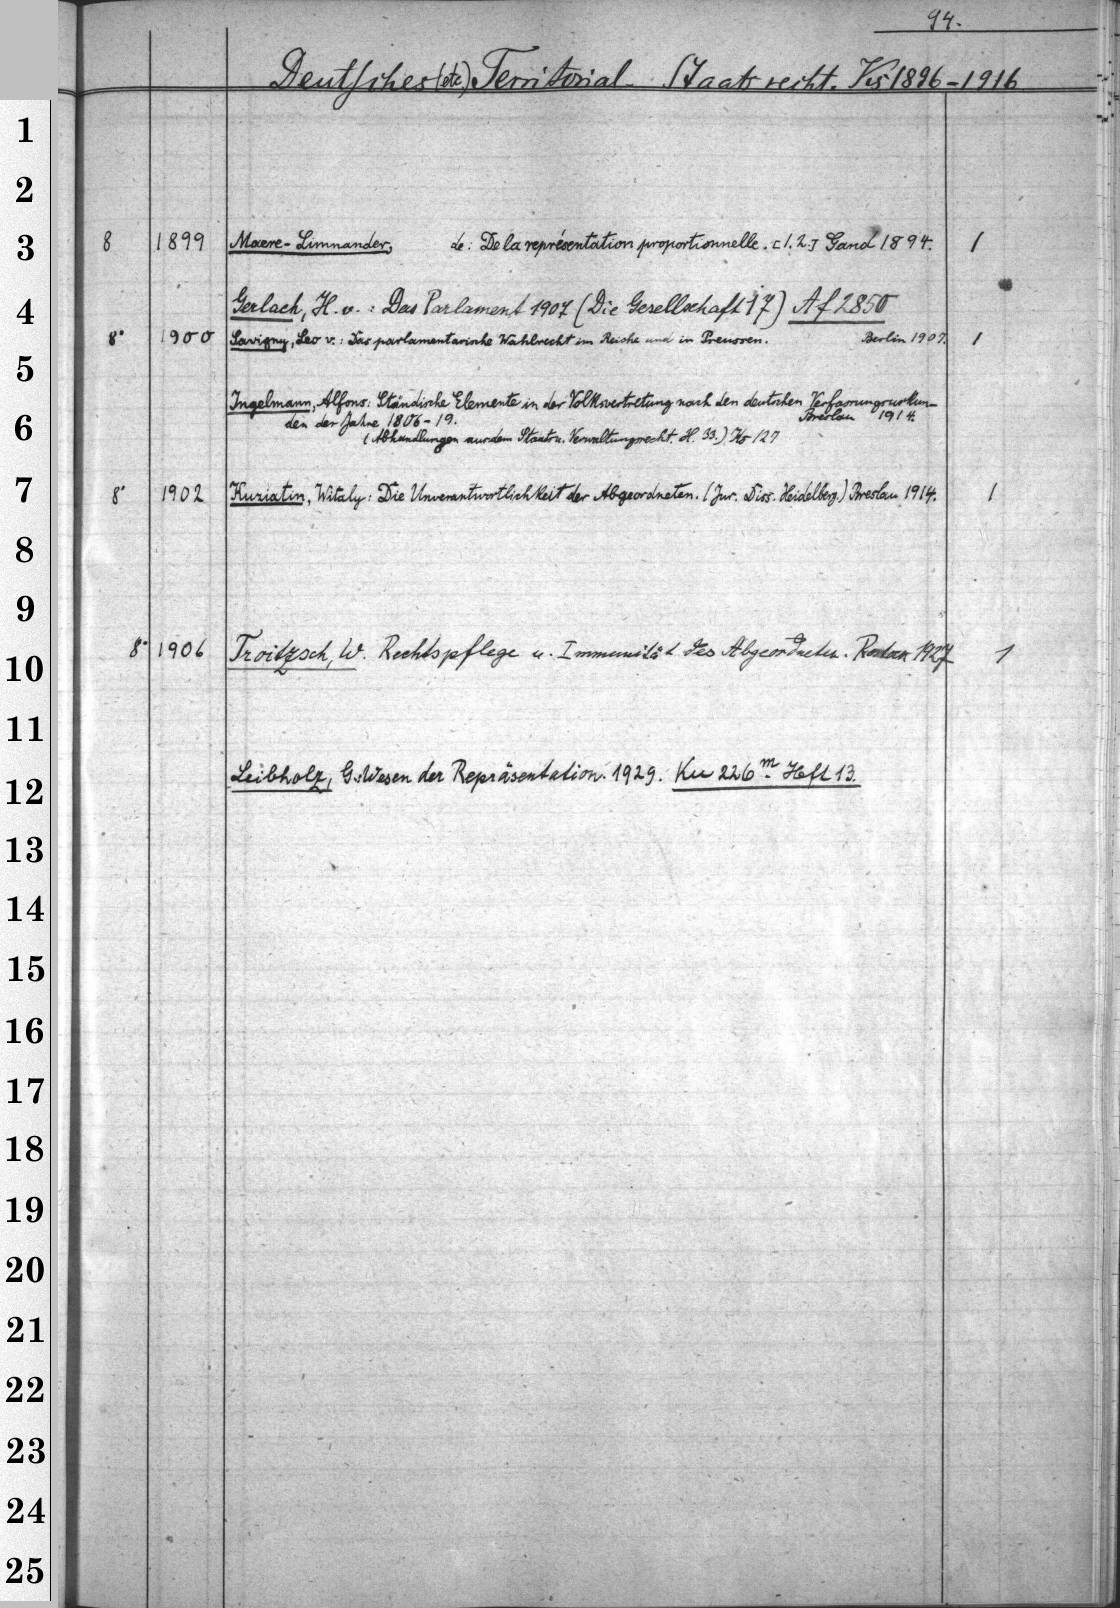 94.
Deutsches (etc.) Territorial- Staatsrecht. Ks 1896-1916
1
2
3 8 1899 Maere-Limnander, de: De la représentation proportionnelle. [1.2.] Gand 1894. 1
4 Gerlach, H. v.: Das Parlament 1907 (Die Gesellschaft 17) Af 2850
8° 1900 Savigny, Leo v.: Das parlamentarische Wahlrecht im Reiche und in Preussen. Berlin 1907. 1
5
Ingelmann, Alfons: Ständische Elemente in der Volksvertretung nach den deutschen Verfassungsurkun-
6 den der Jahre 1806-19. Breslau 1914.
(Abhandlungen aus dem Staats u. Verwaltungsrecht. H. 33.) Ko 127
7 8° 1902 Kuriatin, Witaly: Die Unverantwortlichkeit der Abgeordneten. (Jur. Diss. Heidelberg.) Breslau 1914. 1
8
9
10 8° 1906 Troitzsch, W. Rechtspflege u. Immunität des Abgeordneten. Rostock 1927 1
11
12 Leibholz, G. Wesen der Repräsentation. 1929. Ku 226m Heft 13.
13
14
15
16
17
18
19
20
21
22
23
24
25